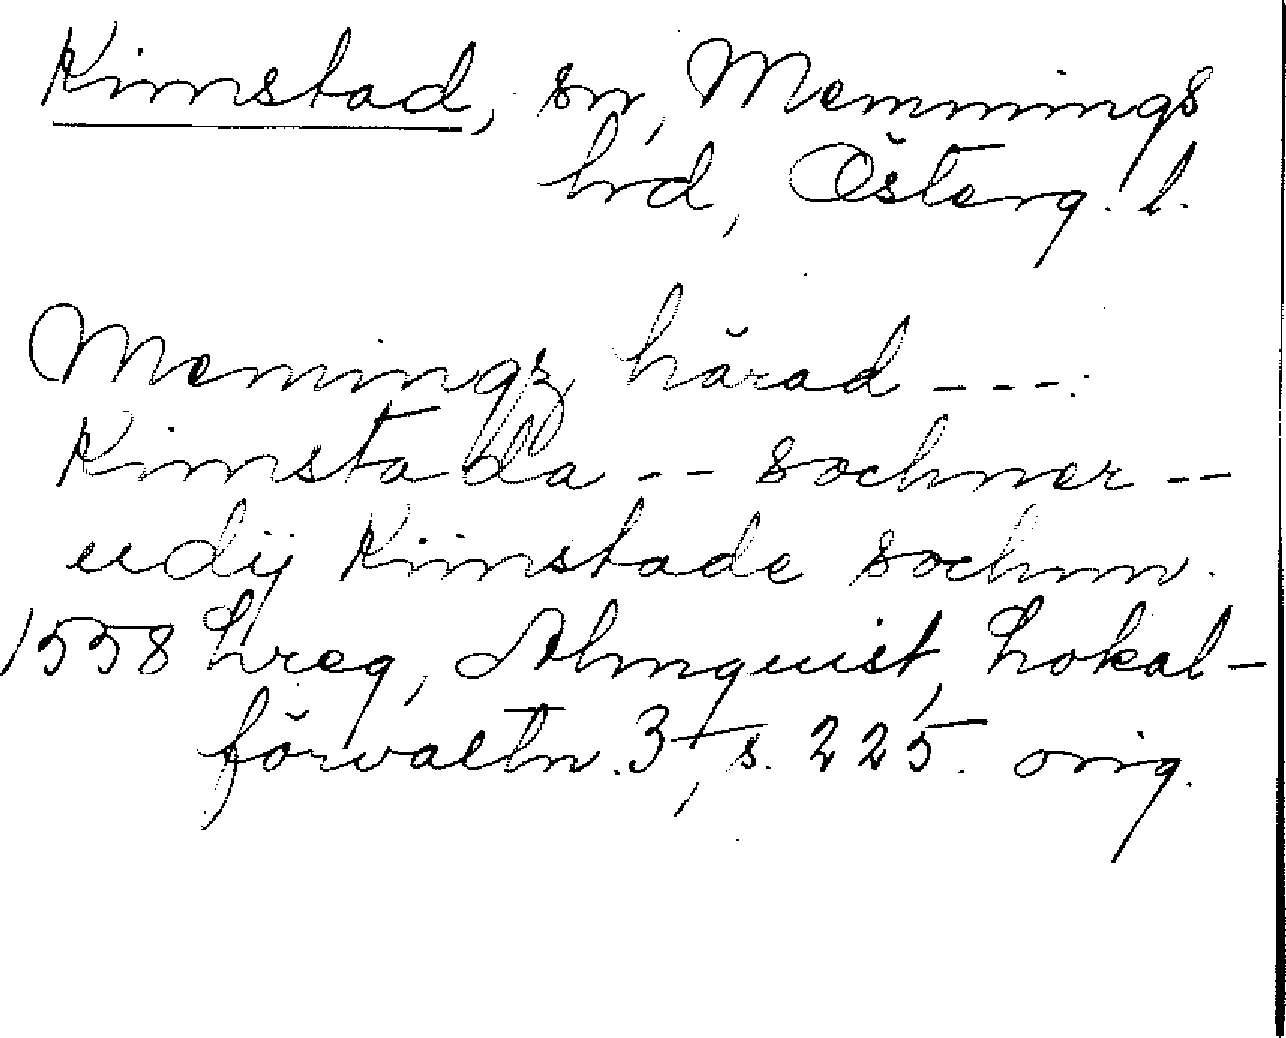 Kimstad, sn, Memmings
hrd, Österg. l.
Memingz härad ---.
Kimstada -- sochner --
udij Kiimstade sochnn.
1558 Lreg, Almquist, Lokal-
förvaltn. 3, s. 225. orig.